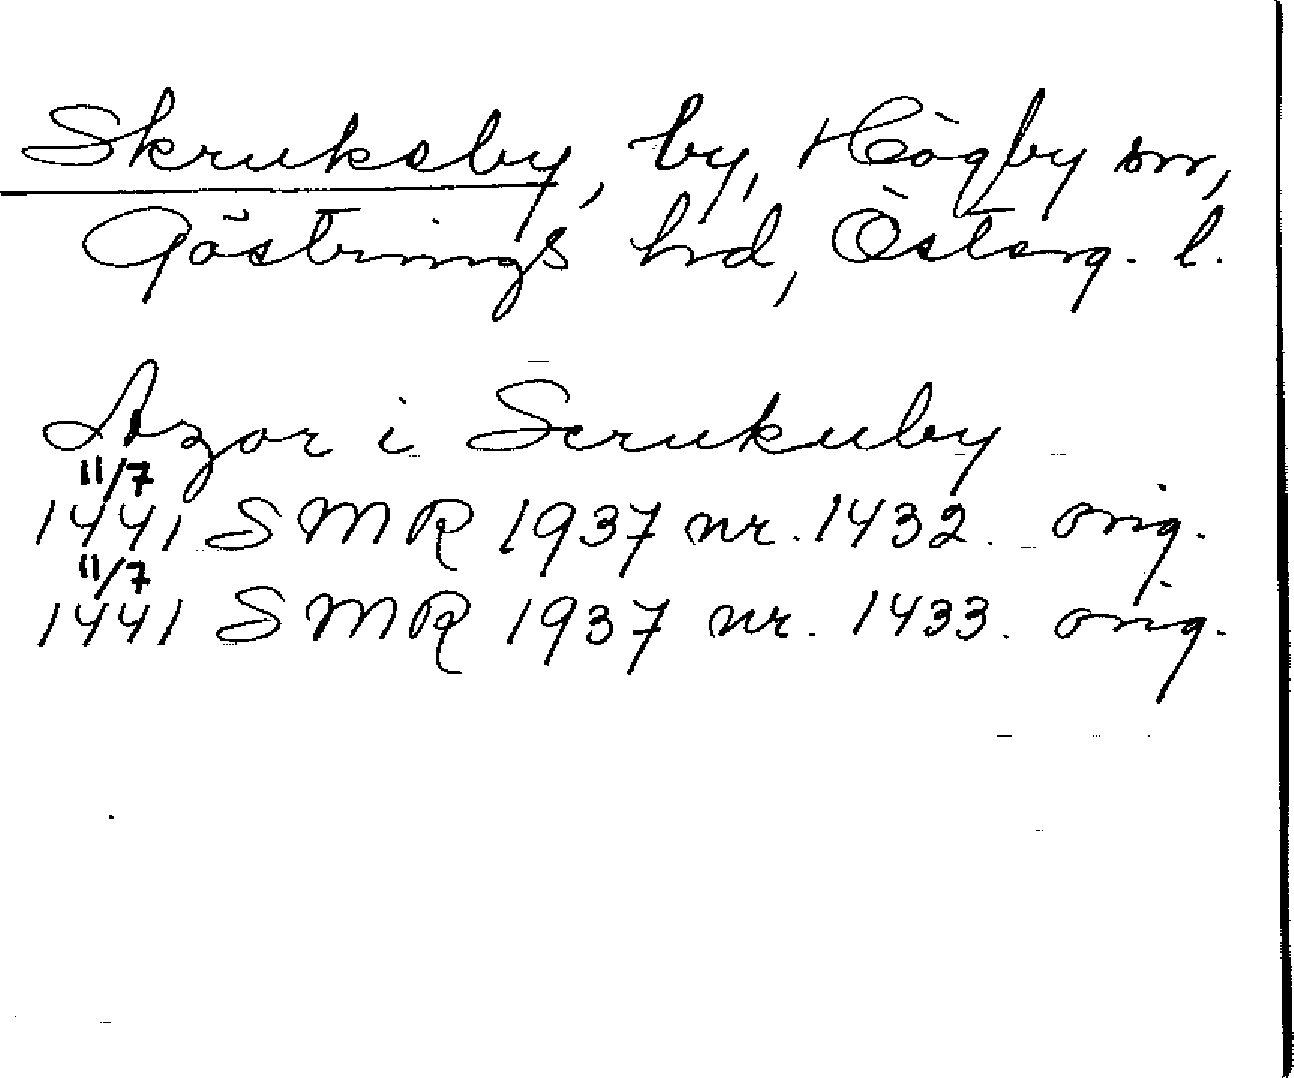 Skruksby, by, Högby sn,
Göstrings hd, Österg. l.
Azor i Scrukuby
11/7
1441 SMR 1937 nr. 1432. orig.
11/7
1441 SMR 1937 nr. 1433. orig.